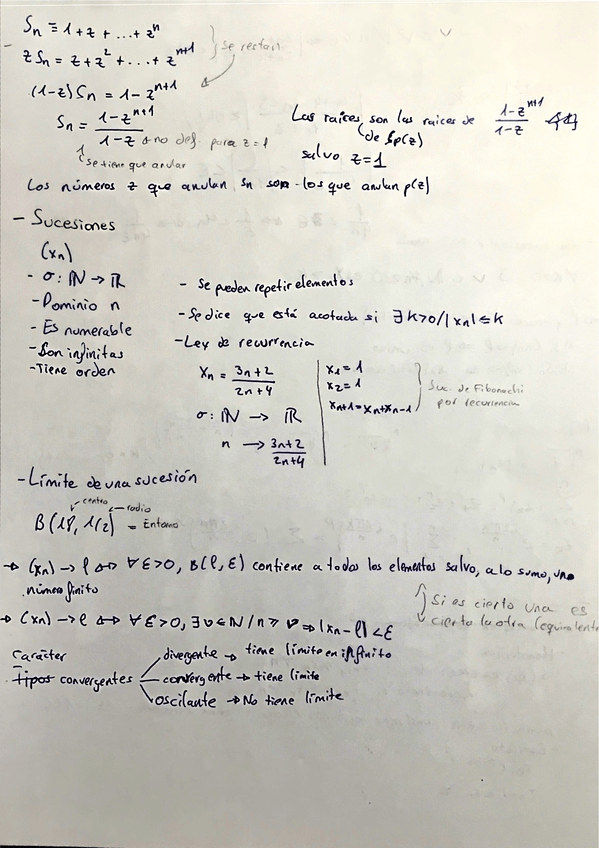 Sn = 1+z+...+zⁿ
z Sn = z+z²+...+zⁿ⁺¹
Se restan
(1-z) Sn = 1-zⁿ⁺¹
Sn = (1-zⁿ⁺¹)/(1-z) → no def. para z=1
Se tiene que anular
Las raíces de p(z) son las raices de (1-zⁿ⁺¹)/(1-z)
salvo z=1
Los números z que anulan Sn son los que anulan p(z)
- Sucesiones
(xn)
- σ: ℕ → ℝ
- Dominio n
- Es numerable
- Son infinitas
- Tiene orden
- Se pueden repetir elementos
- Se dice que está acotada si ∃ k>0/|xn| ≤ k
- Ley de recurrencia
xn = (3n+2)/(2n+4)
σ: ℕ → ℝ
n → (3n+2)/(2n+4)
x1 = 1
x2 = 1
xn+1 = xn+xn-1
Suc. de Fibonachi
por recurrencia
- Límite de una sucesión
centro radio
B(1, 1/2) = Entorno
→ (xn) → l ⇔ ∀ ε>0, B(l, ε) contiene a todos los elementos salvo, a lo sumo, uno
número finito
→ (xn) → l ⇔ ∀ ε>0, ∃ ν ∈ ℕ / n ≥ ν ⇒ |xn - l| < ε
Si es cierto una es
cierto la otra (equivalente
Carácter
Tipos convergentes
divergente → tiene límite en infinito
convergente → tiene límite
oscilante → No tiene límite